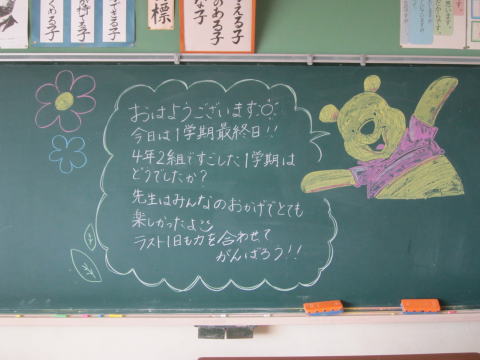 くめる子
が持てる子
できる子
標
のある子
える子
な子
おはようございます
今日は1学期最終日!!
4年2組ですごした1学期は
どうでしたか?
先生はみんなのおかげでとても
楽しかったよ
ラスト1日も力を合わせて
がんばろう!!